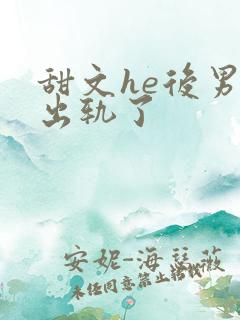 甜文he后男
出轨了
安妮-海瑟薇
未经同意禁止搭载